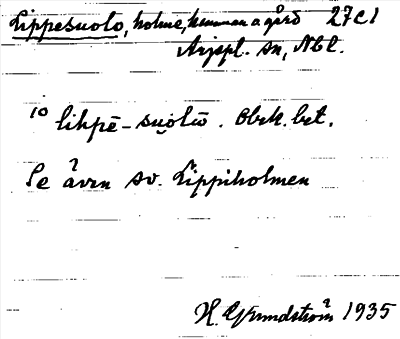 Lippesuolo, holme, hemman o gård 27C1
Arjspl. sn, Nbl.
10 lihpē-suolū. Obek. bet.
Se även sv. Lippiholmen
H. Grundström 1935